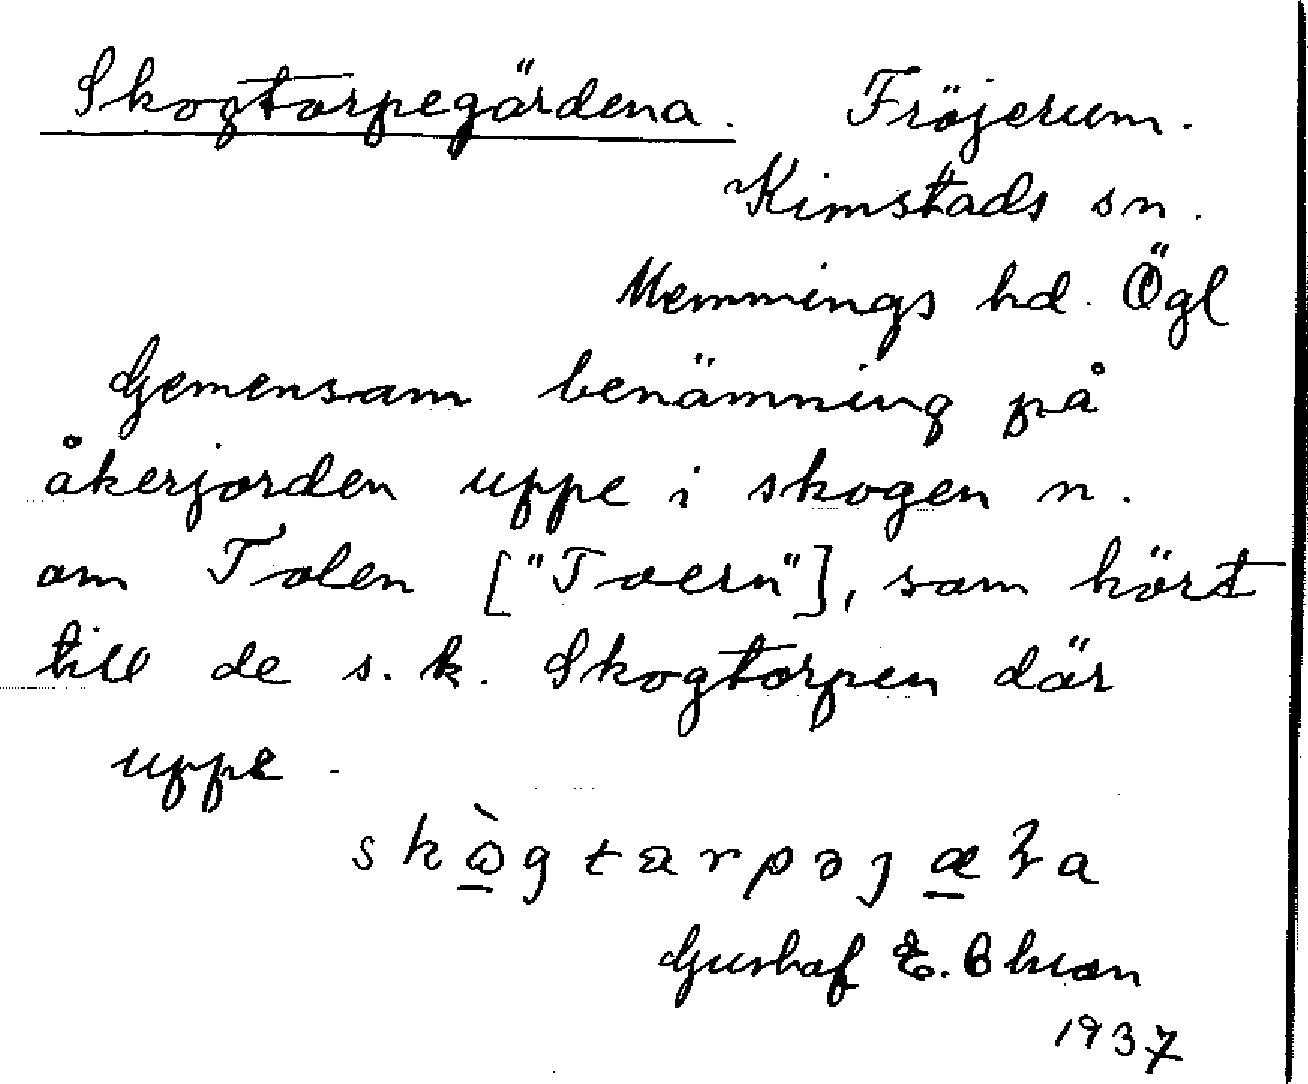 Skogtorpegärdena. Fröjerum.
Kimstads sn.
Memmings hd. Ögl
Gemensam benämning på
åkerjorden uppe i skogen n.
om Tolen ["Toern"], som hört
till de s.k. Skogtorpen där
uppe.
Gustaf E.
1937